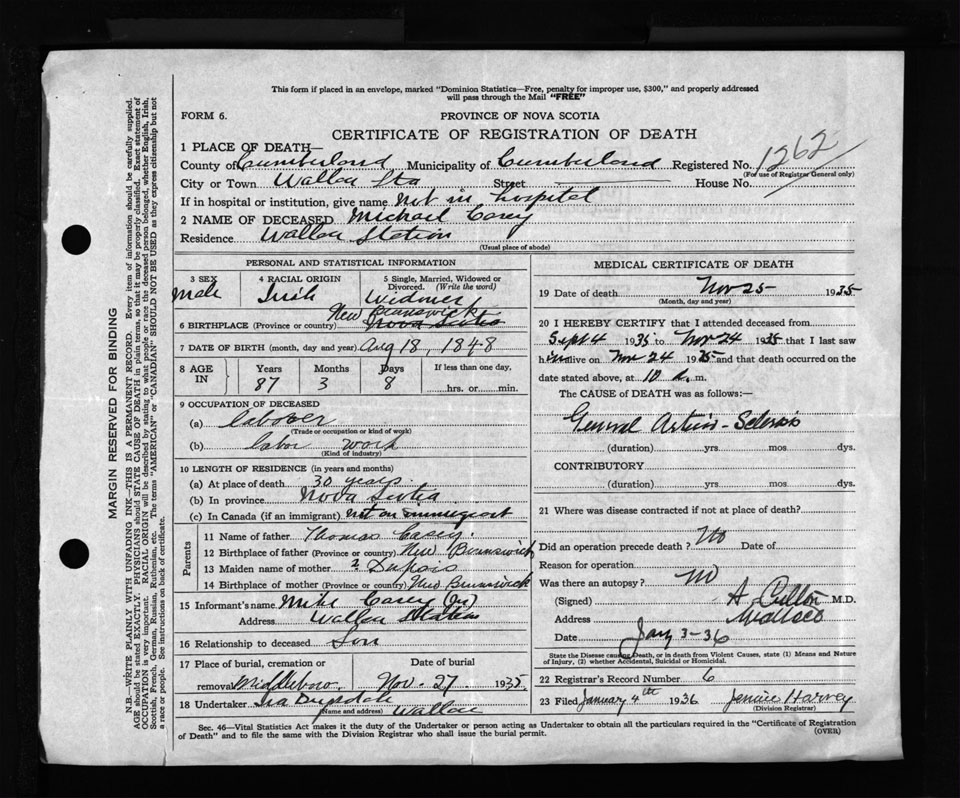 This form if placed in an envelope, marked "Dominion Statistics—Free, penalty for improper use, $300," and properly addressed
will pass through the Mail "FREE"
FORM 6. PROVINCE OF NOVA SCOTIA
CERTIFICATE OF REGISTRATION OF DEATH
1 PLACE OF DEATH—
County of Cumberland Municipality of Cumberland Registered No. 1262
(For use of Registrar General only)
City or Town Wallace Sta Street House No.
If in hospital or institution, give name Not in hospital
2 NAME OF DECEASED Michael Casey
Residence Wallace Station
(Usual place of abode)
PERSONAL AND STATISTICAL INFORMATION
3 SEX 4 RACIAL ORIGIN 5 Single, Married, Widowed or Divorced. (Write the word)
Male Irish Widower
New Brunswick
6 BIRTHPLACE (Province or country) Nova Scotia
7 DATE OF BIRTH (month, day and year) Aug 18, 1848
8 AGE IN Years Months Days If less than one day,
87 3 8 hrs. or min.
9 OCCUPATION OF DECEASED
(a) laborer
(Trade or occupation or kind of work)
(b) labor work
(Kind of industry)
10 LENGTH OF RESIDENCE (in years and months)
(a) At place of death 30 years.
(b) In province Nova Scotia
(c) In Canada (if an immigrant) not an immigrant
Parents
11 Name of father Thomas Casey.
12 Birthplace of father (Province or country) New Brunswick
13 Maiden name of mother ? Dupois
14 Birthplace of mother (Province or country) New Brunswick
15 Informant's name Mike Casey (Jr)
Address Wallace Station
16 Relationship to deceased Son
17 Place of burial, cremation or Date of burial
removal Middleboro. Nov. 27 1935
18 Undertaker Wallace
(Name and address)
MEDICAL CERTIFICATE OF DEATH
19 Date of death Nov 25 1935
(Month, day and year)
20 I HEREBY CERTIFY that I attended deceased from
Sept 4 1935 to Nov 24 1935 that I last saw
him alive on Nov 24 1935 and that death occurred on
date stated above, at 10 a. m.
The CAUSE of DEATH was as follows:—
General Arterio-Sclerosis
(duration) yrs. mos. dys.
CONTRIBUTORY
(duration) yrs. mos. dys.
21 Where was disease contracted if not at place of death?
Did an operation precede death? No Date of
Reason for operation
Was there an autopsy? No
(Signed) M.D.
Address Wallace
Date Jany 3-36
State the Disease causing Death, or in death from Violent Causes, state (1) Means and Nature
of Injury, (2) whether Accidental, Suicidal or Homicidal.
22 Registrar's Record Number 6
23 Filed January 4th 1936 Jennie Harvey
(Division Registrar)
Sec. 46—Vital Statistics Act makes it the duty of the Undertaker or person acting as Undertaker to obtain all the particulars required in the "Certificate of Registration
of Death" and to file the same with the Division Registrar who shall issue the burial permit.
(OVER)
MARGIN RESERVED FOR BINDING
N.B.—WRITE PLAINLY WITH UNFADING INK—THIS IS A PERMANENT RECORD. Every item of information should be carefully supplied.
AGE should be stated EXACTLY. PHYSICIANS should STATE CAUSE OF DEATH in plain terms, so that it may be properly classified. Exact statement of
OCCUPATION is very important. RACIAL ORIGIN will be described by stating to what people or race the deceased person belonged, whether English, Irish,
Scottish, French, German, Russian, Ruthenian, etc. The terms "AMERICAN" or "CANADIAN" SHOULD NOT BE USED as they express citizenship but not
a race or people. See instructions on back of certificate.